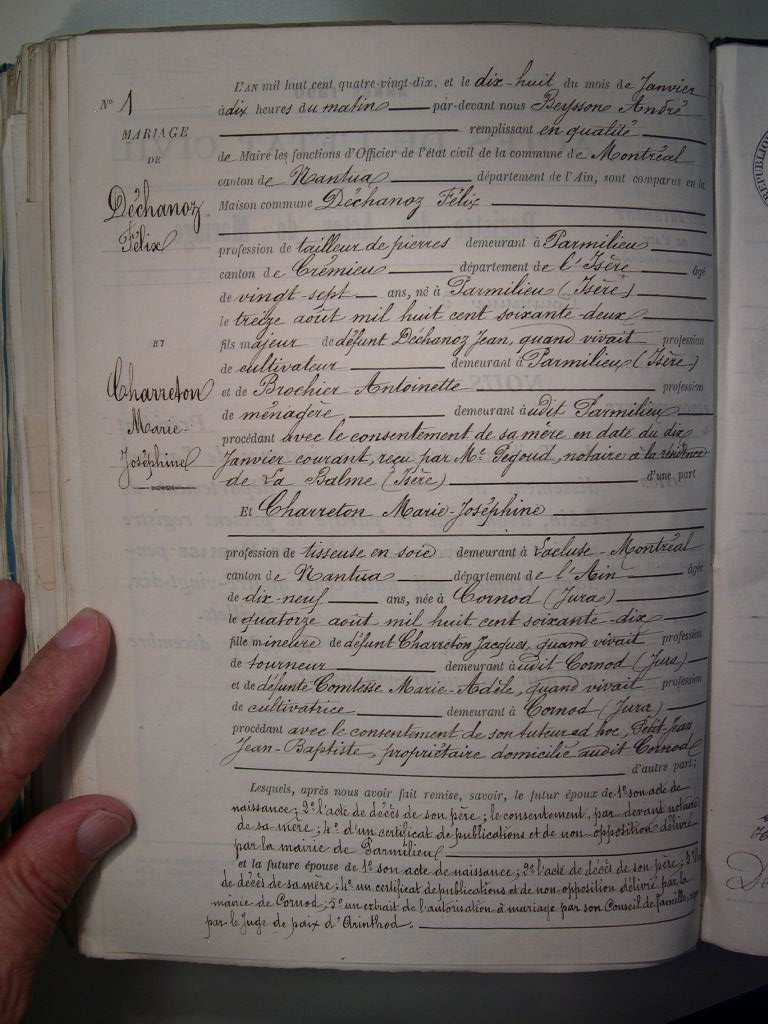 L'AN mil huit cent quatre-vingt-dix, et le dix-huit du mois de Janvier
N° 1
à dix heures du matin par-devant nous Beysson André
MARIAGE
remplissant en qualité
DE
de Maire les fonctions d'Officier de l'état civil de la commune de Montréal
canton de Nantua département de l'Ain, sont comparus en la
Déchanoz
Maison commune Déchanoz Félix
Félix
profession de tailleur de pierres demeurant à Parmilieu
canton de Crémieu département de l'Isère âgé
de vingt-sept ans, né à Parmilieu (Isère)
le treize août mil huit cent soixante-deux
ET
fils majeur de défunt Déchanoz Jean, quand vivait profession
de cultivateur demeurant à Parmilieu (Isère)
Charreton
et de Brochier Antoinette profession
Marie-
de ménagère, demeurant audit Parmilieu
Joséphine
procédant avec le consentement de sa mère en date du dix
Janvier courant, reçu par Me Pegoud, notaire à la résidence
de La Balme (Isère) d'une part
Et Charreton Marie-Joséphine
profession de tisseuse en soie demeurant à Lacluse-Montréal
canton de Nantua département de l'Ain âgée
de dix-neuf ans, née à Cornod (Jura)
le quatorze août mil huit cent soixante-dix
fille mineure de défunt Charreton Jacques, quand vivait profession
de tourneur demeurant audit Cornod (Jura)
et de défunte Comtesse Marie-Adèle, quand vivait profession
de cultivatrice demeurant à Cornod (Jura)
procédant avec le consentement de son tuteur ad hoc, Petit-Jean
Jean-Baptiste, propriétaire domicilié audit Cornod
d'autre part;
Lesquels, après nous avoir fait remise, savoir, le futur époux de 1° son acte de
naissance; 2° l'acte de décès de son père; le consentement, par devant notaire
de sa mère; 4° d'un certificat de publications et de non opposition délivré
par la mairie de Parmilieu
et la future épouse de 1° son acte de naissance; 2° l'acte de décès de son père; 3°
de décès de sa mère; 4° un certificat de publications et de non opposition délivré par la
mairie de Cornod; 5° un extrait de l'autorisation à mariage par son Conseil de famille,
par le Juge de paix d'Arinthod.